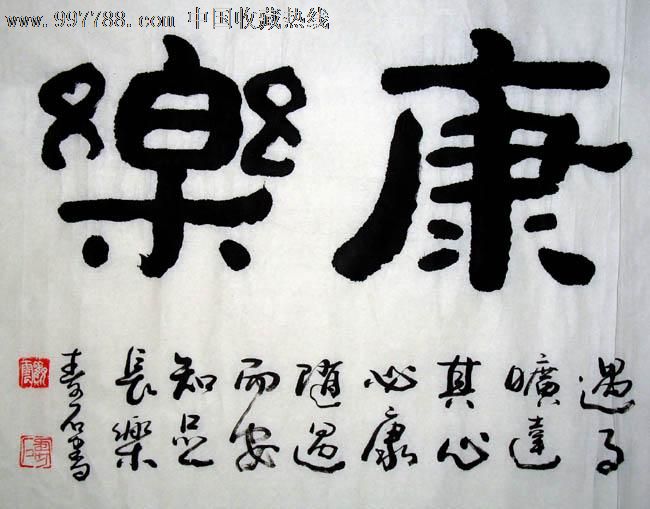 www.997788.com 中国收藏热线
康樂
遇事
曠達
其心
必康
隨遇
而安
知足
長樂
壽石書